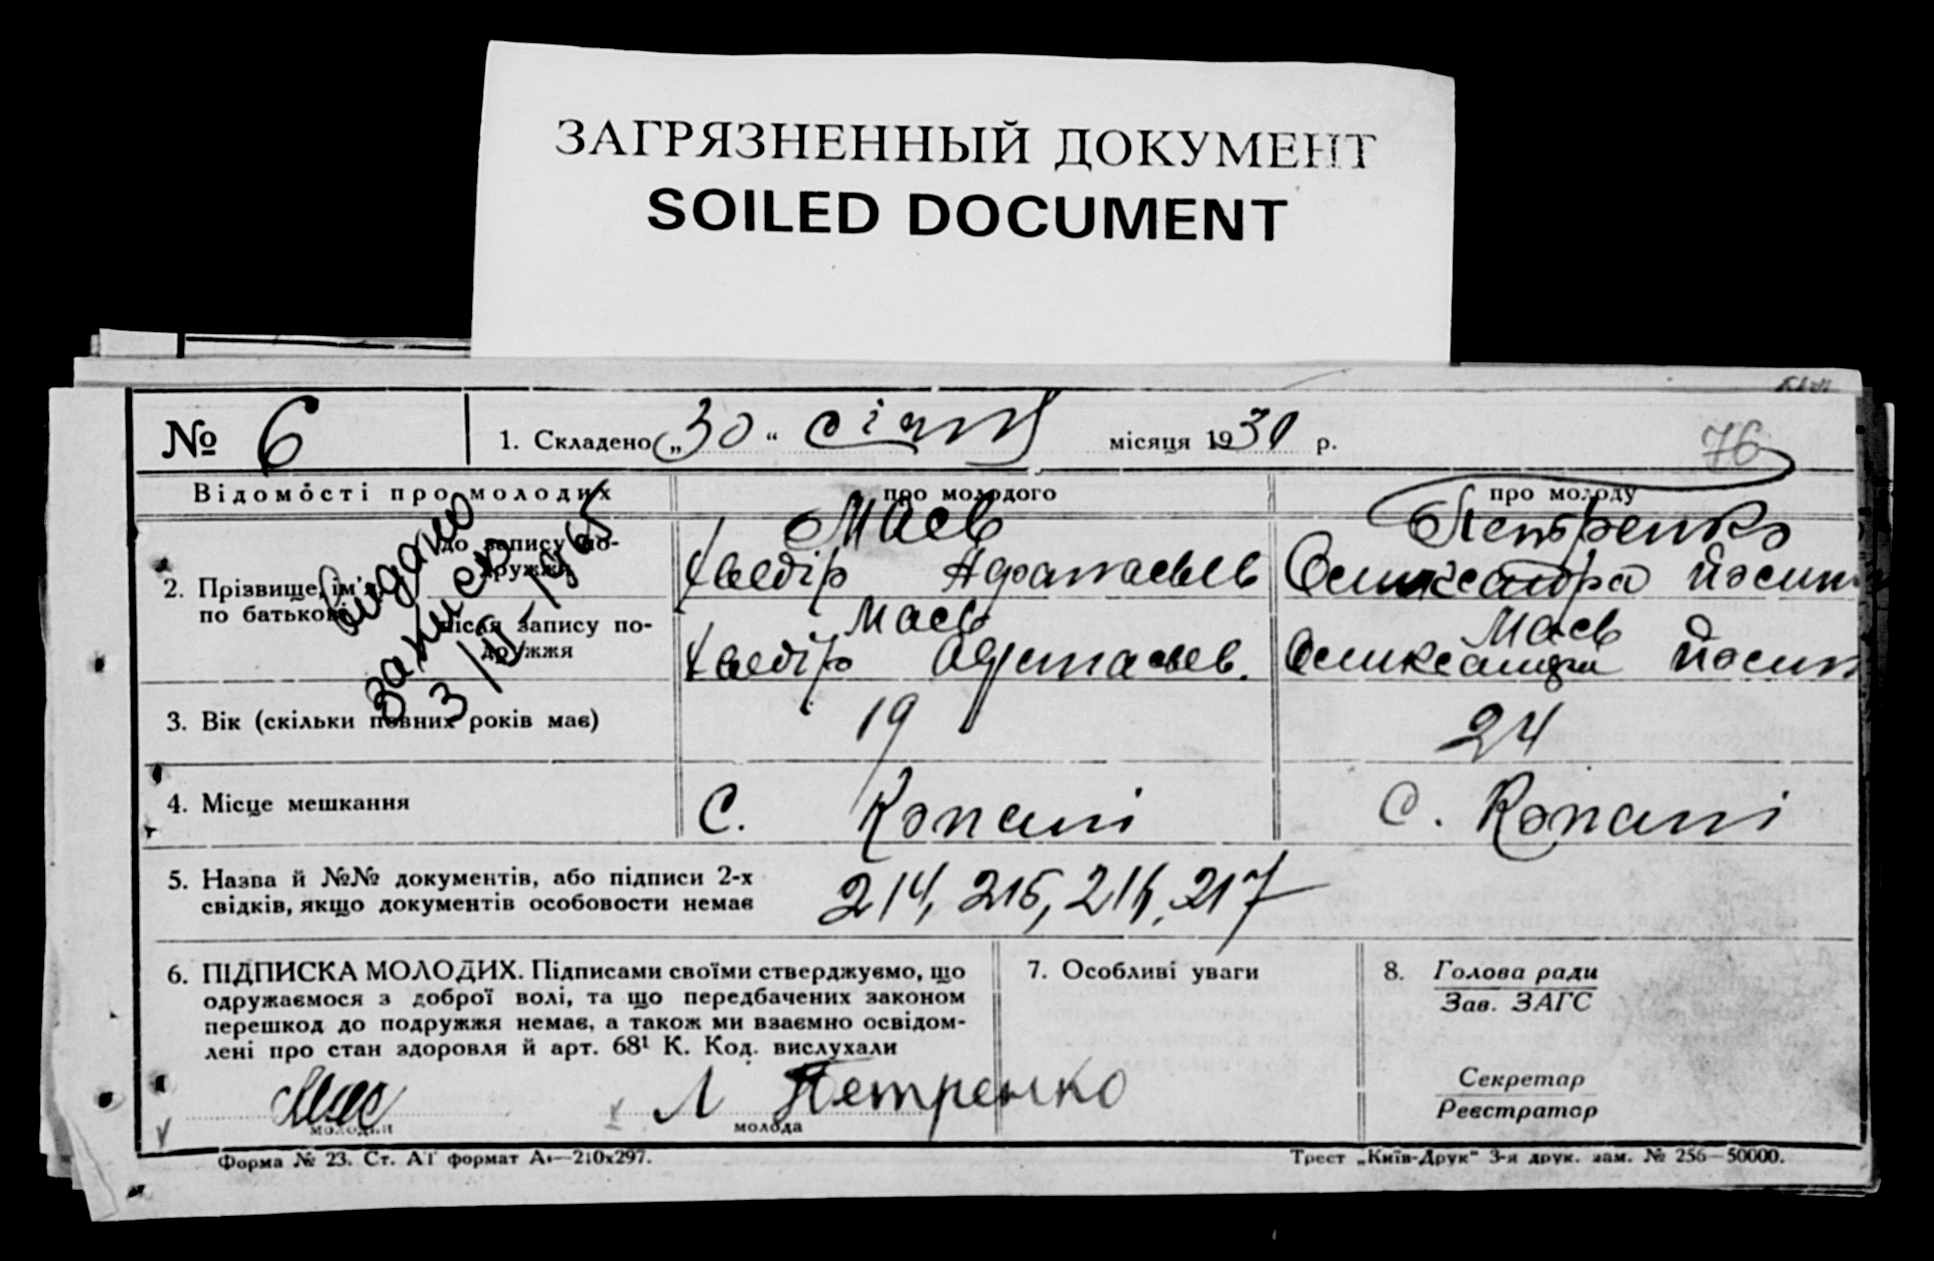 ЗАГРЯЗНЕННЫЙ ДОКУМЕНТ
SOILED DOCUMENT
№ 6
1. Складено „30“ січня місяця 1931 р.
76
Відомості про молодих
про молодого
про молоду
2. Прізвище, ім'я, по батькові
до запису по-
дружжя
Маєв
Хведір Афанасьев
Петренко
Олександра Йосип
після запису по-
дружжя
Маєв
Хведір Афанасьев.
Маєв
Олександра Йосип
видано
3. Вік (скільки повних років має)
19
24
4. Місце мешкання
с. Копані
с. Копані
5. Назва й №№ документів, або підписи 2-х
свідків, якщо документів особовости немає
214, 215, 216, 217
6. ПІДПИСКА МОЛОДИХ. Підписами своїми стверджуємо, що
одружаємося з доброї волі, та що передбачених законом
перешкод до подружжя немає, а також ми взаємно освідом-
лені про стан здоровля й арт. 68¹ К. Код. вислухали
Л Петренко
молодий
молода
7. Особливі уваги
8. Голова ради
Зав. ЗАГС
Секретар
Реєстратор
Форма № 23. Ст. А1 формат А4—210х297.
Трест „Київ-Друк“ 3-я друк. зам. № 256—50000.